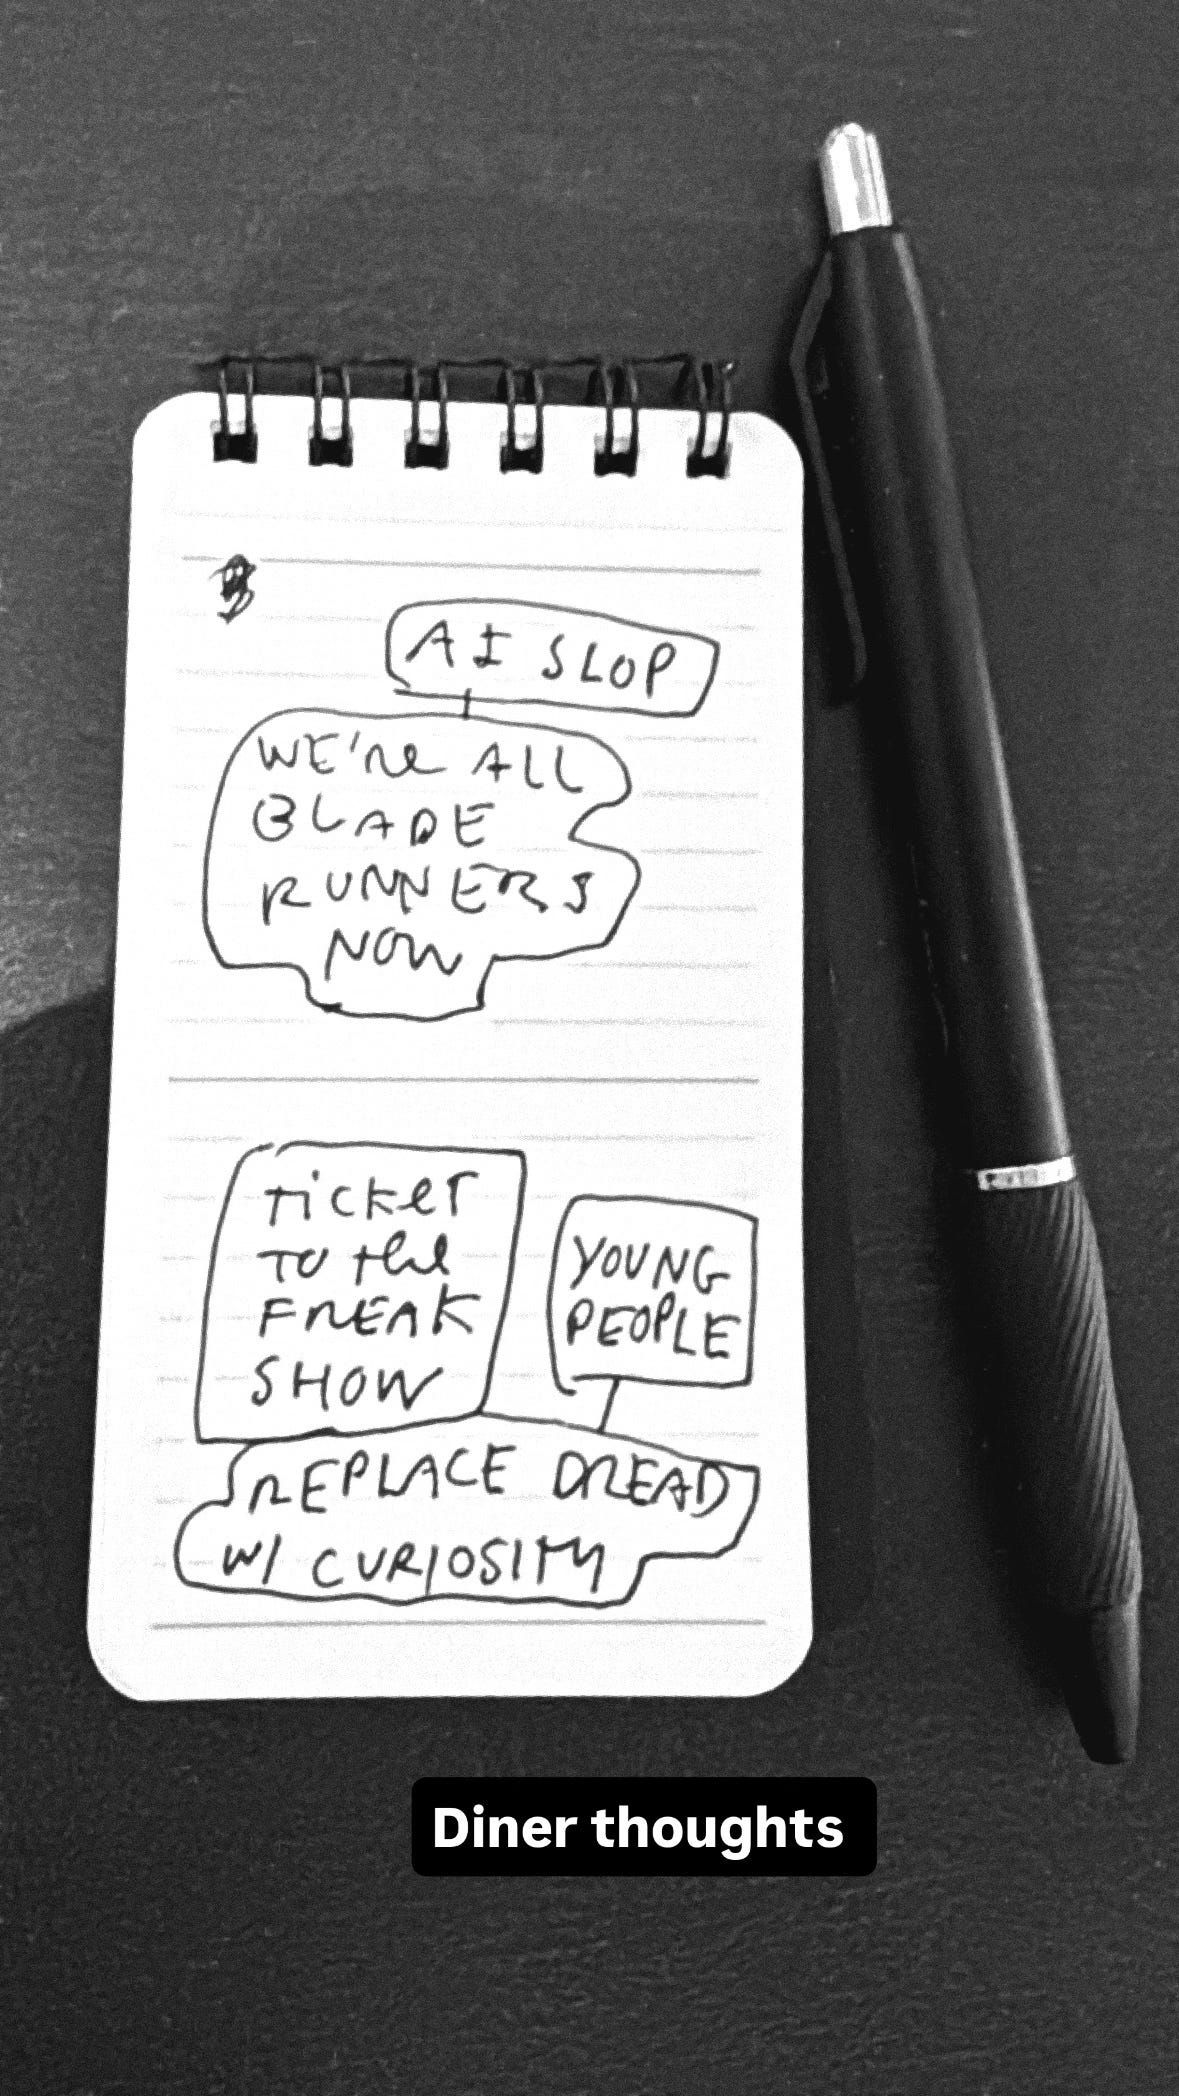 AI SLOP
WE'RE ALL
BLADE
RUNNERS
NOW
TICKET
TO THE
FREAK
SHOW
YOUNG
PEOPLE
REPLACE DREAD
W/ CURIOSITY
Diner thoughts